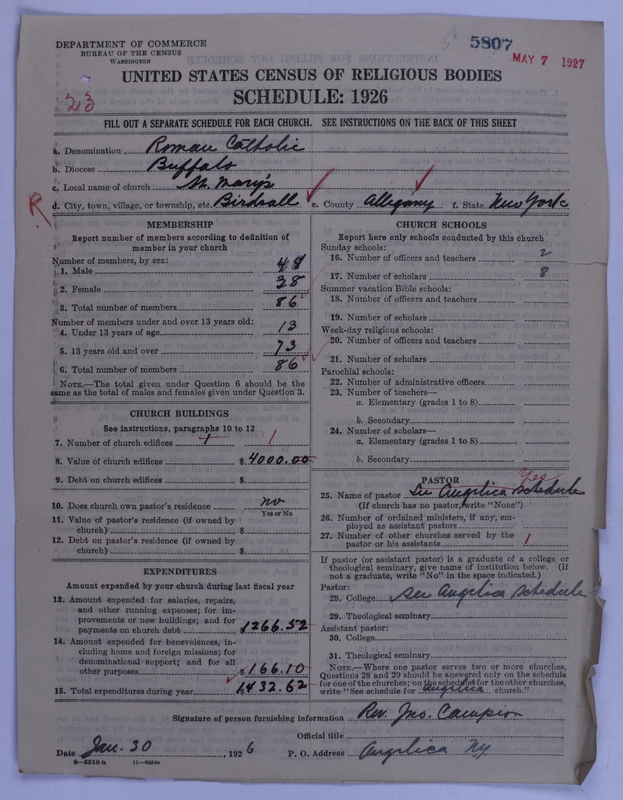 DEPARTMENT OF COMMERCE
BUREAU OF THE CENSUS
WASHINGTON
5807
MAY 7 1927
UNITED STATES CENSUS OF RELIGIOUS BODIES
SCHEDULE: 1926
23
FILL OUT A SEPARATE SCHEDULE FOR EACH CHURCH. SEE INSTRUCTIONS ON THE BACK OF THIS SHEET
a. Denomination Roman Catholic
b. Diocese Buffalo
c. Local name of church St. Mary's
R
d. City, town, village, or township, etc. Birdsall e. County Allegany f. State New York
MEMBERSHIP
Report number of members according to definition of
member in your church
Number of members, by sex:
1. Male 48
2. Female 38
3. Total number of members 86
Number of members under and over 13 years old:
4. Under 13 years of age 13
5. 13 years old and over 73
6. Total number of members 86
NOTE.—The total given under Question 6 should be the
same as the total of males and females given under Question 3.
CHURCH BUILDINGS
See instructions, paragraphs 10 to 12
7. Number of church edifices 1 1
8. Value of church edifices $4000.00
9. Debt on church edifices $
10. Does church own pastor's residence no
Yes or No
11. Value of pastor's residence (if owned by
church) $
12. Debt on pastor's residence (if owned by
church) $
EXPENDITURES
Amount expended by your church during last fiscal year
13. Amount expended for salaries, repairs,
and other running expenses; for im-
provements or new buildings; and for
payments on church debt $1266.52
14. Amount expended for benevolences, in-
cluding home and foreign missions; for
denominational support; and for all
other purposes $166.10
15. Total expenditures during year 1432.62
CHURCH SCHOOLS
Report here only schools conducted by this church
Sunday schools:
16. Number of officers and teachers 2
17. Number of scholars 8
Summer vacation Bible schools:
18. Number of officers and teachers
19. Number of scholars
Week-day religious schools:
20. Number of officers and teachers
21. Number of scholars
Parochial schools:
22. Number of administrative officers
23. Number of teachers—
a. Elementary (grades 1 to 8)
b. Secondary
24. Number of scholars—
a. Elementary (grades 1 to 8)
b. Secondary
PASTOR
Yes
25. Name of pastor See Angelica Schedule
(If church has no pastor, write "None")
26. Number of ordained ministers, if any, em-
ployed as assistant pastors
27. Number of other churches served by the
pastor or his assistants 1
If pastor (or assistant pastor) is a graduate of a college or
theological seminary, give name of institution below. (If
not a graduate, write "No" in the space indicated.)
Pastor:
28. College See Angelica Schedule
29. Theological seminary
Assistant pastor:
30. College
31. Theological seminary
NOTE.—Where one pastor serves two or more churches,
Questions 28 and 29 should be answered only on the schedule
for one of the churches; on the schedules for the other churches,
write "See schedule for Angelica church."
Signature of person furnishing information Rev. Jno. Campion
Official title
Date Jan. 30 1926 P. O. Address Angelica Ny
8—5518 a